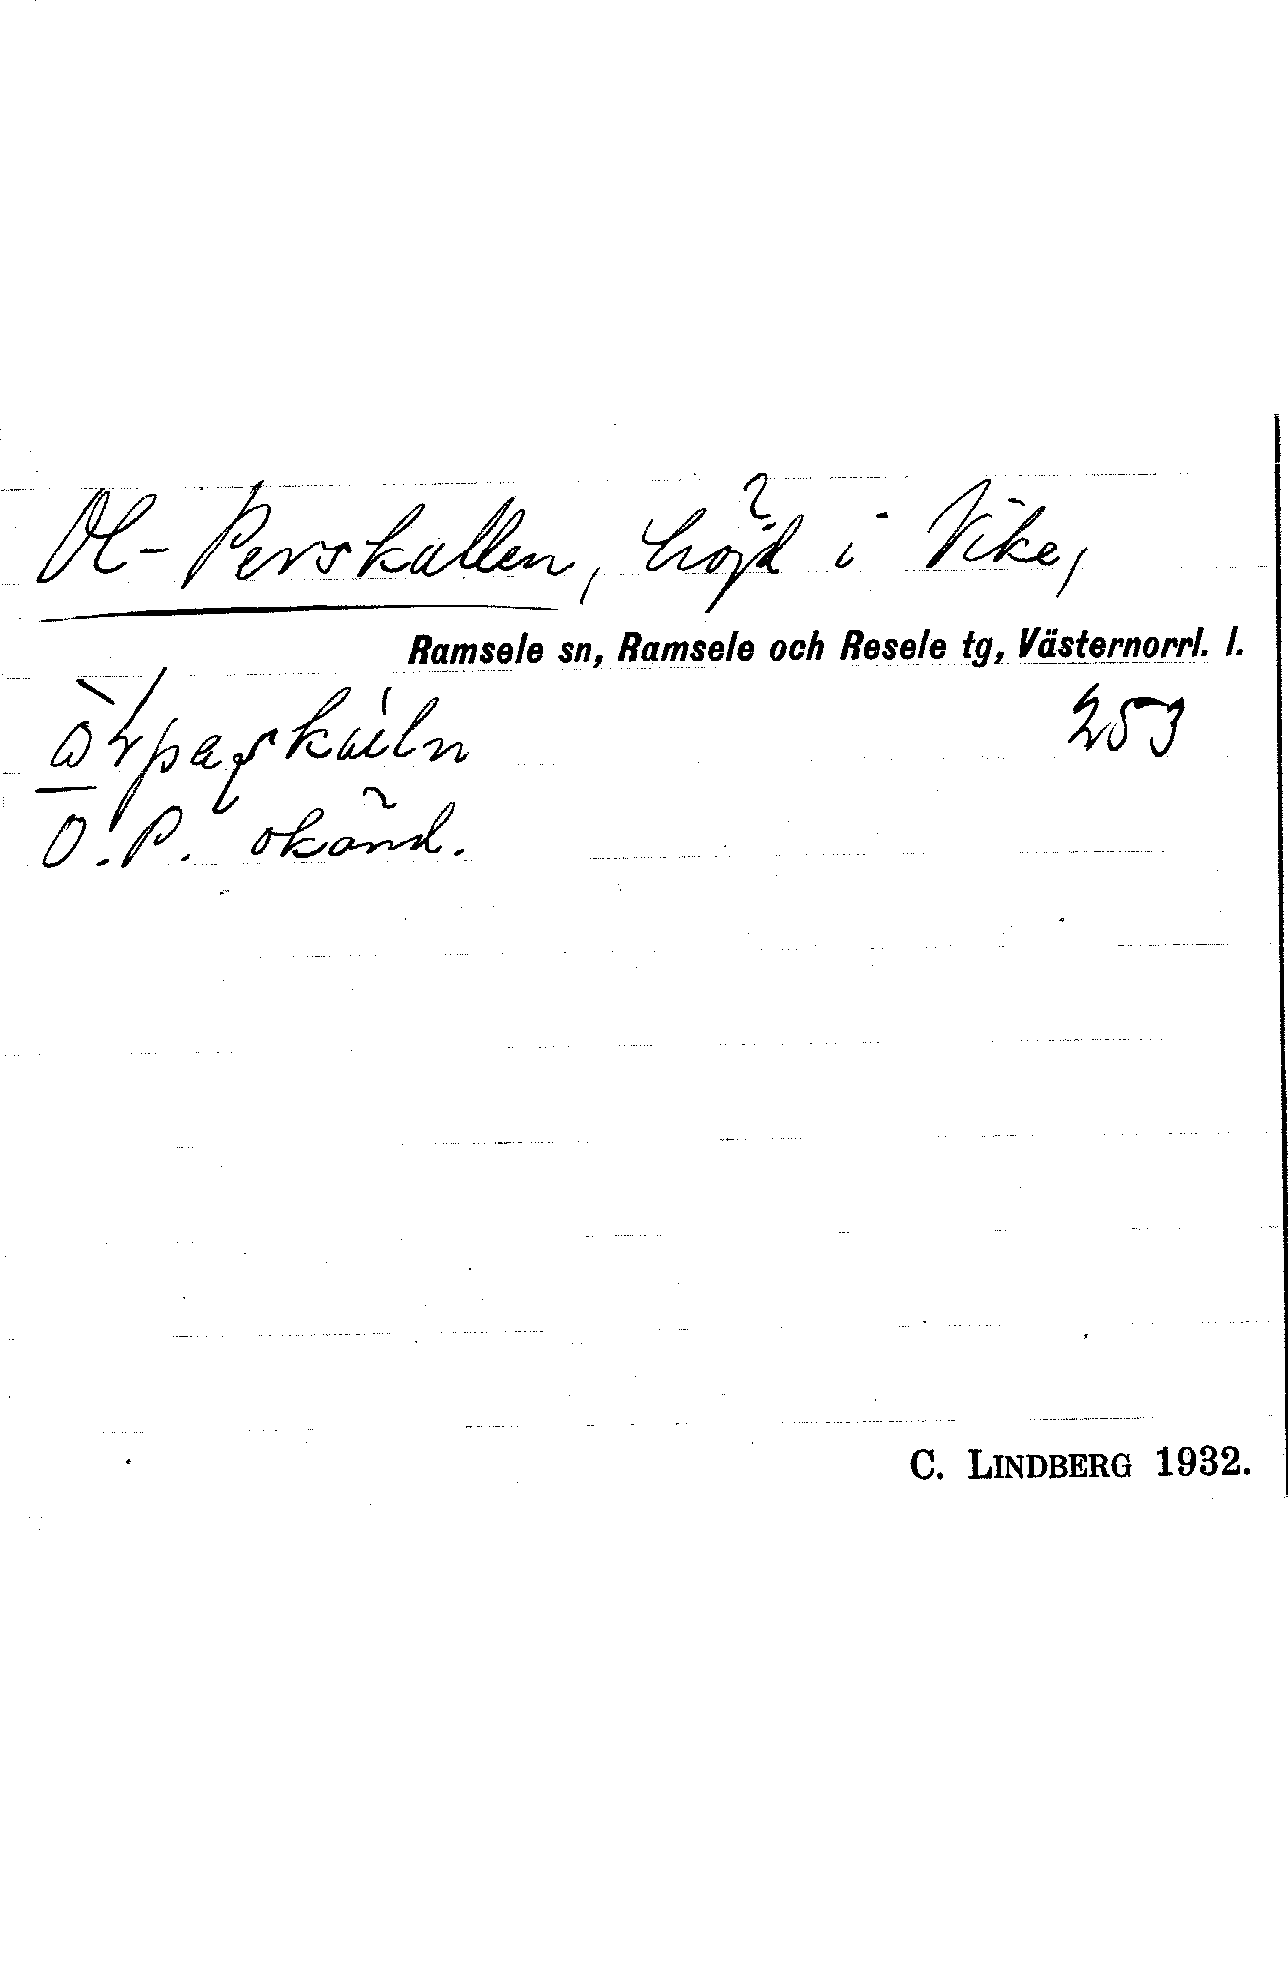 Ol-Perskallen, höjd i Vike,
Ramsele sn, Ramsele och Resele tg, Västernorrl. l.
253
O.P. okänd.
C. LINDBERG 1932.